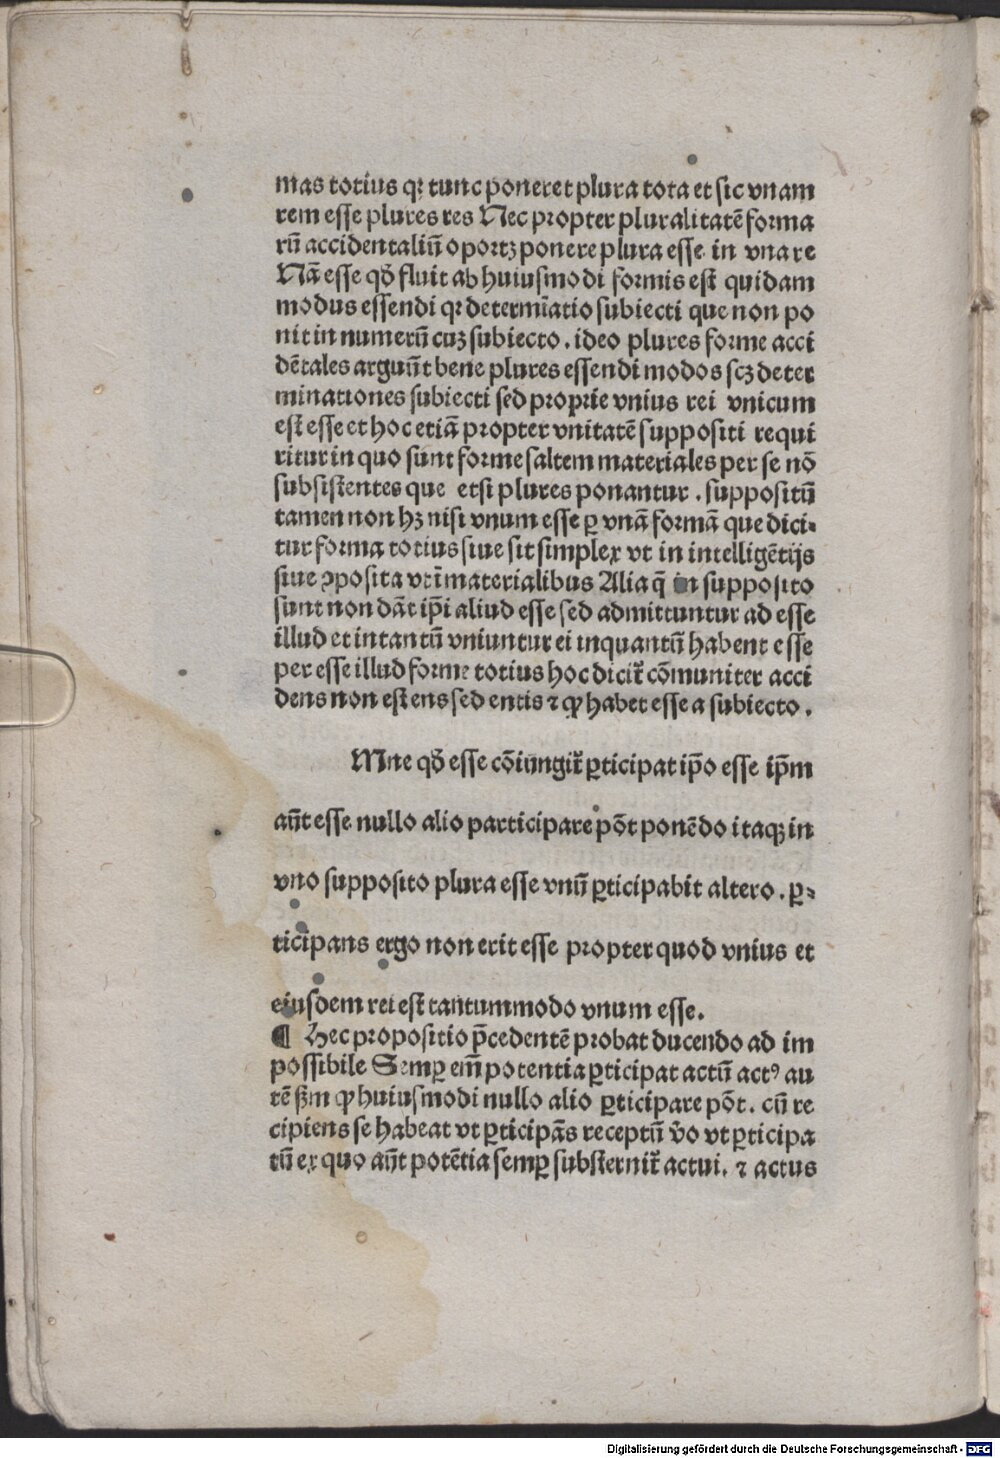 mas totius qꝛ tunc poneret plura tota et sic vnam
rem esse plures res Nec propter pluralitatē forma
rū accidentaliū oportꝫ ponere plura esse in vna re
Nā esse qd̄ fluit ab huiusmodi formis est quidam
modus essendi qꝛ determīatio subiecti que non po
nit in numerū cuꝫ subiecto. ideo plures forme acci
dētales arguūt bene plures essendi modos scꝫ deter
minationes subiecti sed proprie vnius rei vnicum
est esse et hoc etiā propter vnitatē suppositi requi
ritur in quo sunt forme saltem materiales per se nō
subsistentes que etsi plures ponantur. suppositū
tamen non hꝫ nisi vnum esse ꝑ vnā formā que dici⸗
tur forma totius siue sit simplex vt in intelligētijs
siue ꝯposita vt ī materialibus Alia q̄ in supposito
sunt non dāt ip̄i aliud esse sed admittuntur ad esse
illud et intantū vniuntur ei inquantū habent esse
per esse illud forme totius hoc dicit̃ cōmuniter acci
dens non est ens sed entis ⁊ ꝙ habet esse a subiecto.
Mne qd̄ esse cōiungit̃ ꝑticipat ip̄o esse ip̄m
aūt esse nullo alio participare pōt ponēdo itaqꝫ in
vno supposito plura esse vnū ꝑticipabit altero. ꝑ⸗
ticipans ergo non erit esse propter quod vnius et
eiusdem rei est tantummodo vnum esse.
¶ Hec propositio p̄cedentē probat ducendo ad im
possibile Semꝑ em̄ potentia ꝑticipat actū actꝰ au
tē ẜm ꝙ huiusmodi nullo alio ꝑticipare pōt. cū re
cipiens se habeat vt ꝑticipās receptū v̄o vt ꝑticipa
tū ex quo aūt potētia semꝑ substernit̃ actui. ⁊ actus
Digitalisierung gefördert durch die Deutsche Forschungsgemeinschaft - DFG